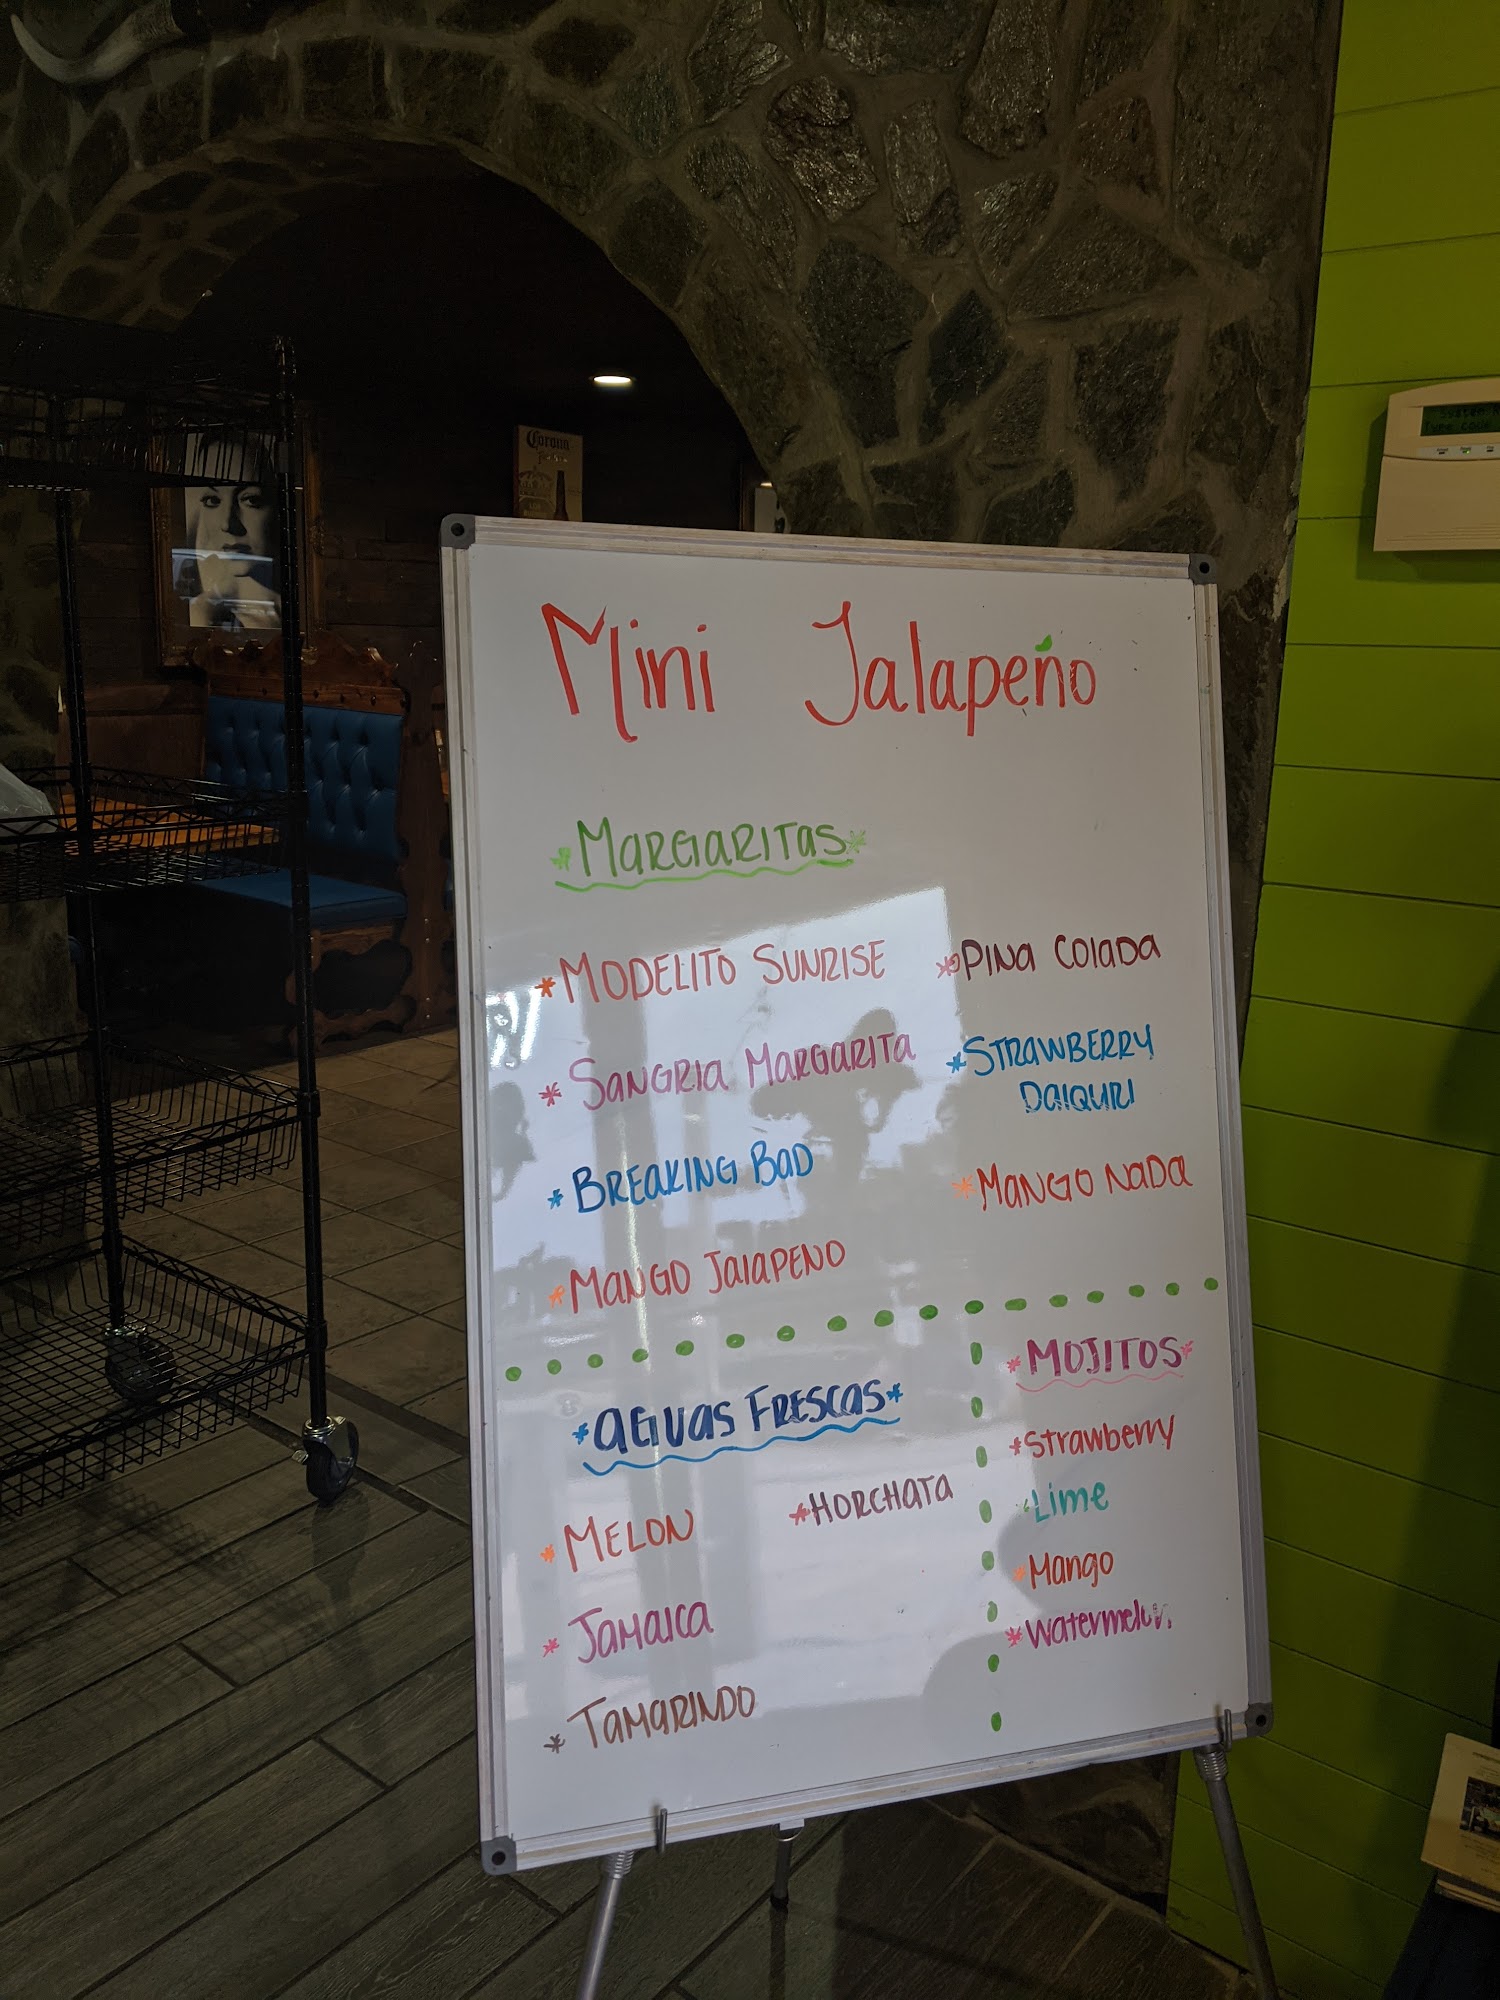 Mini Jalapeño
*MARGARITAS*
*MODELITO SUNRISE
*SANGRIA MARGARITA
*BREAKING BAD
*MANGO JALAPENO
*PINA COLADA
*STRAWBERRY
DAIQUIRI
*MANGO NADA
*AGUAS FRESCAS*
*MELON
*JAMAICA
*TAMARINDO
*HORCHATA
*MOJITOS*
*Strawberry
*Lime
*Mango
*Watermelon
Corona
System
Type code